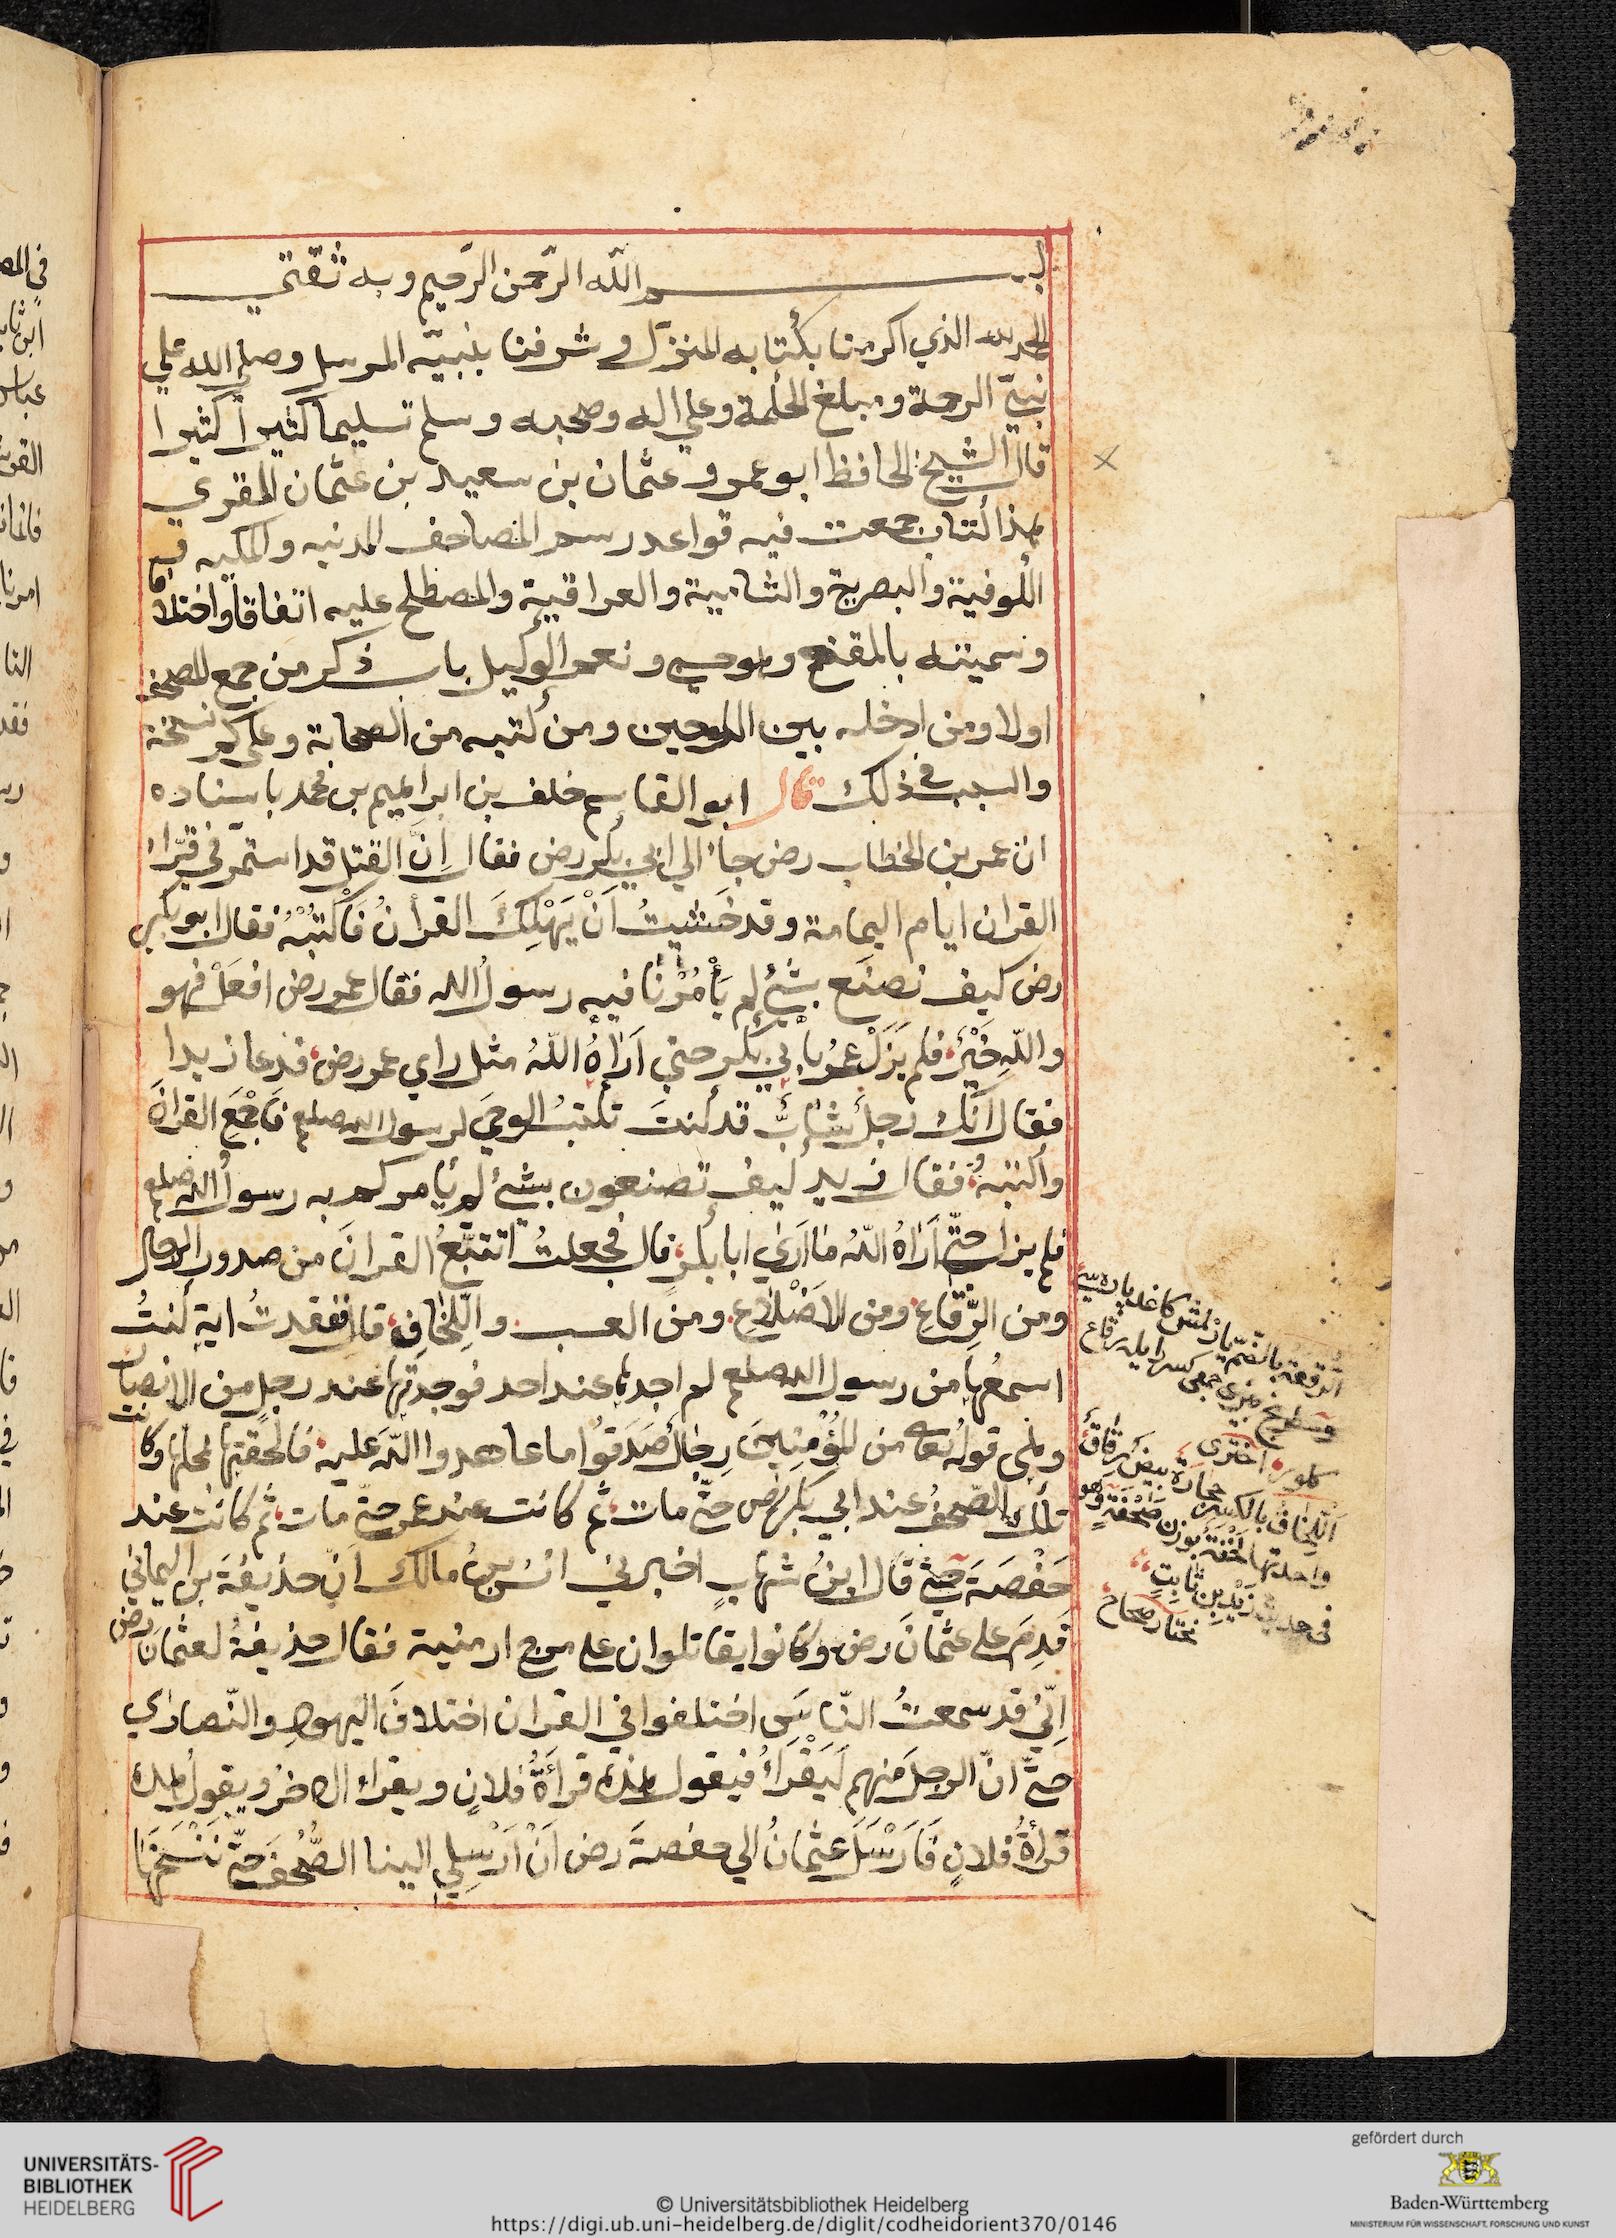 بسم الله الرّحمن الرّحيم وبه ثقتي
الحمد لله الذي اكرمنا بكتابه المنزّل وشرفنا بنبيّه المرسل وصلى الله علي
نبيّ الرحمة ومبلغ الحكمة وعلي اله وصحبه وسلم تسليما كثيرا كثيرا
قال الشيخ الحافظ ابو عمرو عثمان بن سعيد بن عثمان المقري
هذا كتاب جمعت فيه قواعد رسم المصاحف المدنيه والمكيه
الكوفية والبصرية والشامية والعراقيية والمصطلح عليه اتفاقا واختلافا
وسميته بالمقنع وهو حسبي ونعم الوكيل باب ذكر من جمع المصحف
اولا ومن ادخله بين اللوحين ومن كتبه من الصحابة وعلي كم نسخة
والسبب في ذلك قال ابو القاسم خلف بن ابراهيم بن محمد باسناده
ان عمر بن الخطاب رض جاء الي ابي بكر رض فقال اِنّ القتل قد استمرّ في قرّاء
القران ايام اليمامة وقد خَشيتُ اَنْ يَهْلِكَ القرأنُ فَاكْتُبْهُ فقال ابو بكر
رض كيف نصنَع بشئ لم يَأمُرْنَا فيه رسولُ الله فقال عمر رض افعَلْ فهو
واللّهِ خَيْرٌ فلم يَزَلْ عمرُ بابي بكر حتي اَرَاهُ اللّهُ مثل راي عمر رض فدعا زيدا
فقال انّك رجلٌ شَابٌّ قد كنتَ تكتبُ الوحيَ لرسول الله صلعم فَاجْمَعِ القرانَ
واكتبْهُ فقال زيد كيف تصنعون بشئ لم يأمركم به رسولُ الله صلعم
فلم يزل حتّي اَرَاهُ اللّهُ ما اَرَي ابا بكر قال فجعلتُ اتتبّعُ القرانَ من صدور الرجال
ومن الرِّقَاعِ ومن الاَضْلَاعِ ومن العسب واللِّخَافِ قال ففقدتُ اية كنتُ
اسمعُها من رسول الله صلعم لم اجدها عند احد فوجدتُها عند رجلٍ من الانصار
وهي قولُه تعه من المُؤْمِنِينَ رِجَالٌ صَدَقُوا ما عاهدوا اللّهَ عليه فالحقتها محلها وكانت
تلك الصّحفُ عند ابي بكر رض حتّي مات ثم كانت عند عمر حتّي مات ثم كانت عند
حَفْصَةَ حتّي قال ابنُ شهابٍ اخبرني انسُ بنُ مالك انّ حذيفةَ بن اليماني
قَدِمَ علي عثمانَ رض وكانوا يقاتلوان علي مرج ارمنية فقال حذيفةُ لعثمانَ رض
اِنّي قد سمعتُ النّاسَ اختلفوا في القران اختلافَ اليهودِ والنّصارَي
حتّي انّ الرجلَ منهم لَيَقْرَاُ فيقول هذه قرأةُ فلانٍ ويقراُ الاخرُ ويقولُ هذه
قرأةُ فلانٍ فَاَرْسَلَ عثمانُ الي حفصةَ رض اَنْ اَرْسِلِي الينا الصُّحُفَ حتّي نَنْسَخَهَا
الرقعة بالضمّ يازلمش كاغد پاره سي
جمعي كسر ايله رقاع
اختري
اللِّخَاف بالكسر حجارة بيض رقاق
واحدتها لَخْفَة بوزن صَحْفَةٍ وهو
في حديث زيد بن ثابت
مختار صحاح
UNIVERSITÄTS-
BIBLIOTHEK
HEIDELBERG
© Universitätsbibliothek Heidelberg
https://digi.ub.uni-heidelberg.de/diglit/codheidorient370/0146
gefördert durch
Baden-Württemberg
MINISTERIUM FÜR WISSENSCHAFT, FORSCHUNG UND KUNST